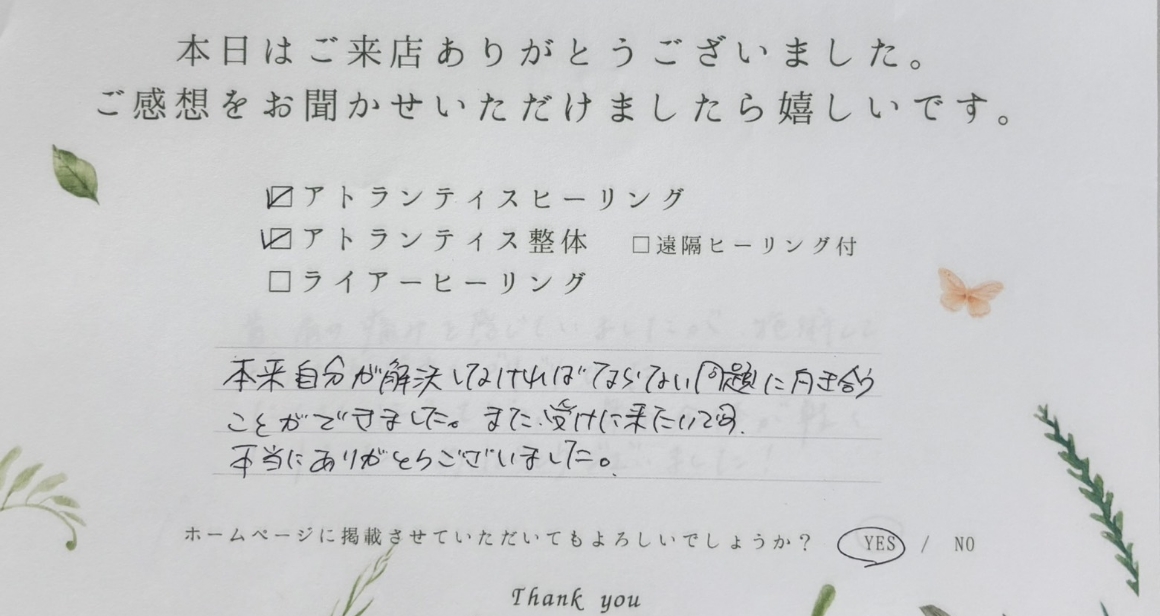 本日はご来店ありがとうございました。
ご感想をお聞かせいただけましたら嬉しいです。
☑アトランティスヒーリング
☑アトランティス整体 □遠隔ヒーリング付
□ライアーヒーリング
本来自分が解決しなければならない問題に向き合う
ことができました。また受けに来たいです。
本当にありがとうございました。
ホームページに掲載させていただいてもよろしいでしょうか? YES / NO
Thank you